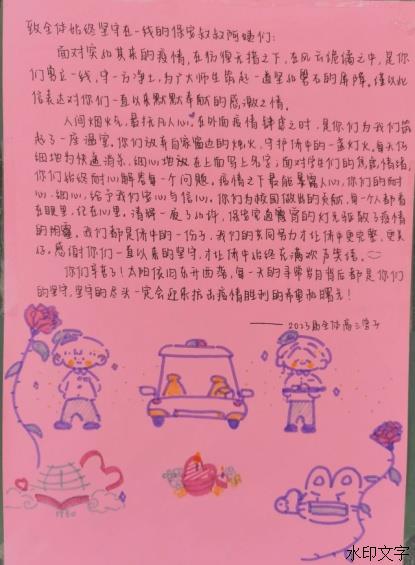 致全体始终坚守在一线的保安叔叔阿姨们：
面对突如其来的疫情，在彷徨无措之下，在风云诡谲之中，是你
们勇立一线，守一方净土，为广大师生筑起一道坚如磐石的屏障，谨以此
信表达对你们一直以来默默奉献的感激之情。
人间烟火气，最抚凡人心。在外面疫情肆虐之时，是你们为我们筑
起了一座温室。你们放弃自家窗边的烛火，守护体中的一盏灯火，每天仔
细地为快递消杀，细心地放在上面写上名字；面对学生们的焦虑情绪，
你们始终耐心解答每一个问题，疫情之下最能暴露人心，你们的耐
心、细心，给予我们安心与信心，你们为校园做出的贡献，每一个人都看
在眼里，记在心里。
的阴霾。我们都是体中的一份子，我们的共同努力才让体中更完整，更美
好，感谢你们一直以来的坚守，才让体中始终充满欢声笑语。
你们辛苦了！太阳依旧东升西落，每一天的寻常岁月背后都是你们
的坚守，坚守的尽头一定会迎来抗击疫情胜利的希望和曙光！
——2023届全体高三学子
水印文字